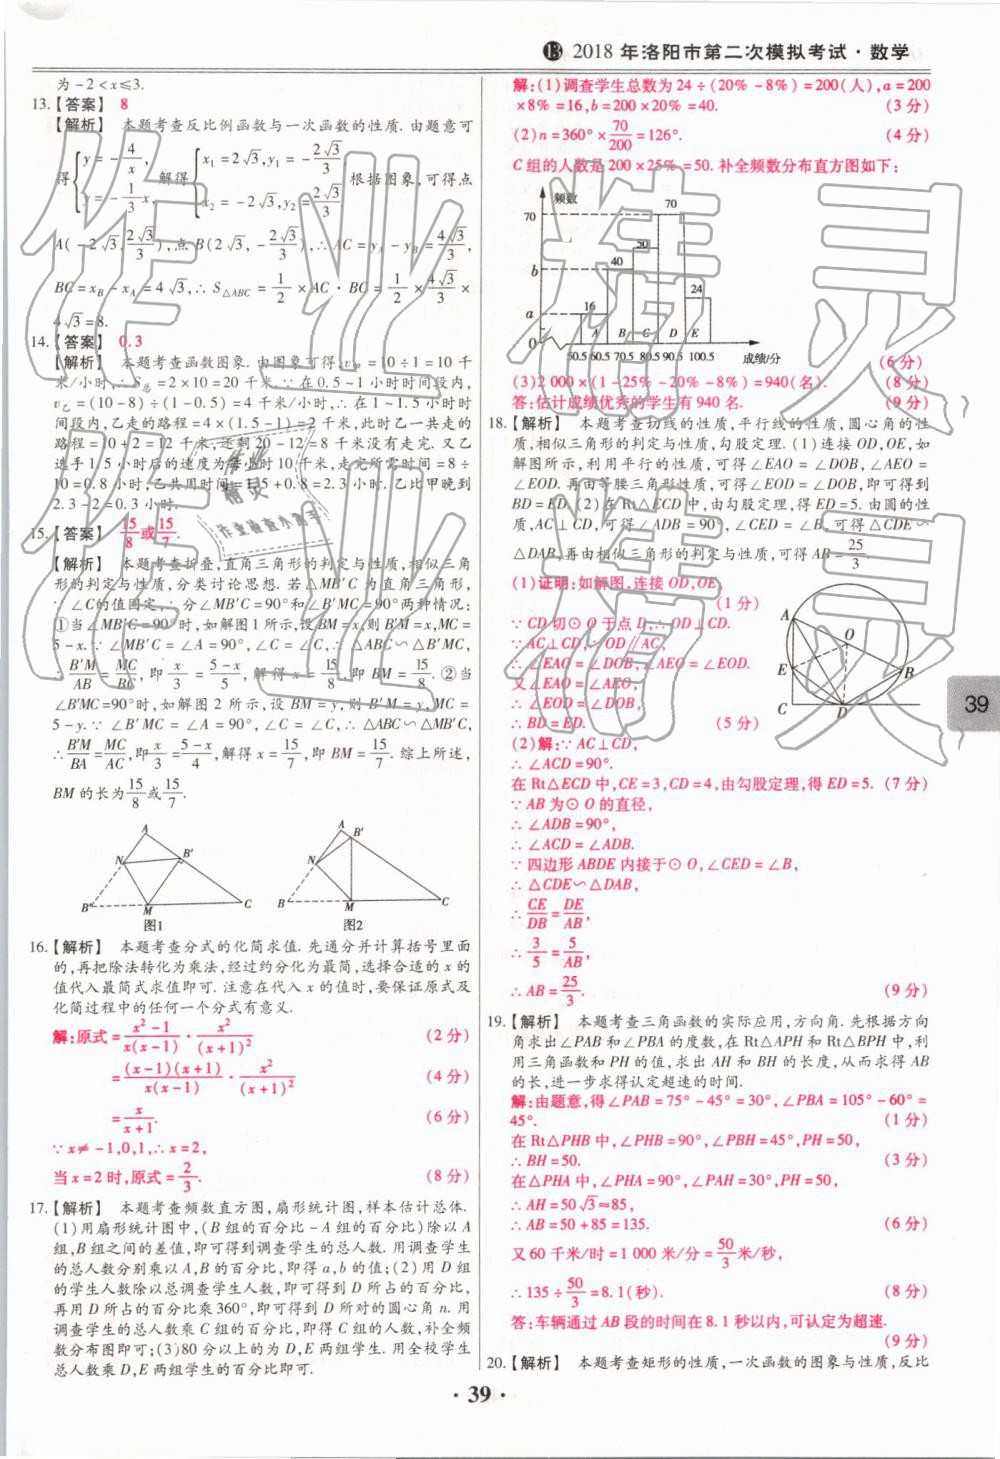 ⓭ 2018 年洛阳市第二次模拟考试·数学
为 -2<x≤3.
13.【答案】 8
【解析】 本题考查反比例函数与一次函数的性质. 由题意可
得{y=-4/x, y=-1/3 x, 解得{x₁=2√3,y₁=-2√3/3, x₂=-2√3,y₂=2√3/3. 根据图象,可得点
A(-2√3,2√3/3),点B(2√3,-2√3/3),∴AC=y_A-y_B=4√3/3,
BC=x_B-x_A=4√3,∴S△ABC=1/2×AC·BC=1/2×4√3/3×
4√3=8.
14.【答案】 0.3
【解析】 本题考查函数图象. 由图象可得,v甲=10÷1=10千
米/小时,∴S总=2×10=20千米.∵在0.5~1小时时间段内,
v乙=(10-8)÷(1-0.5)=4千米/小时,∴在1~1.5小时时
间段内,乙走的路程=4×(1.5-1)=2千米,此时乙一共走的
路程=10+2=12千米,还剩20-12=8千米没有走完.又乙
选手1.5小时后的速度为每小时10千米,走完所需时间=8÷
10=0.8小时,乙共用时间=1.5+0.8=2.3小时.乙比甲晚到
2.3-2=0.3小时.
15.【答案】 15/8或15/7.
【解析】 本题考查折叠,直角三角形的判定与性质,相似三角
形的判定与性质,分类讨论思想. 若△MB′C为直角三角形,
∵∠C的值固定,∴分∠MB′C=90°和∠B′MC=90°两种情况:
①当∠MB′C=90°时,如解图1所示,设BM=x,则B′M=x,MC=
5-x.∵∠MB′C=∠A=90°,∠C=∠C,∴△ABC∽△B′MC,
∴B′M/AB=MC/BC,即x/3=5-x/5,解得x=15/8,即BM=15/8.②当
∠B′MC=90°时,如解图2所示,设BM=y,则B′M=y,MC=
5-y.∵∠B′MC=∠A=90°,∠C=∠C,∴△ABC∽△MB′C,
∴B′M/BA=MC/AC,即x/3=5-x/4,解得x=15/7,即BM=15/7.综上所述,
BM的长为15/8或15/7.
A B′ N B″ M C
图1
A B′ N B M C
图2
16.【解析】 本题考查分式的化简求值.先通分并计算括号里面
的,再把除法转化为乘法,经过约分化为最简,选择合适的x的
值代入最简式求值即可.注意在代入x的值时,要保证原式及
化简过程中的任何一个分式有意义.
解:原式=x²-1/x(x-1)·x²/(x+1)² (2分)
=(x-1)(x+1)/x(x-1)·x²/(x+1)² (4分)
=x/x+1. (6分)
∵x≠-1,0,1,∴x=2,
当x=2时,原式=2/3. (8分)
17.【解析】 本题考查频数直方图,扇形统计图,样本估计总体.
(1)用扇形统计图中,(B组的百分比-A组的百分比)除以A
组,B组之间的差值,即可得到调查学生的总人数.用调查学生
的总人数分别乘以A,B的百分比,即得a,b的值;(2)用D组
的学生人数除以总调查学生人数,即可得到D所占的百分比,
再用D所占的百分比乘360°,即可得到D所对的圆心角n.用
调查学生的总人数乘C组的百分比,即得C组的人数,补全频
数分布图即可;(3)80分以上的为D,E两组学生.用全校学生
总人数乘D,E两组学生的百分比即可.
解:(1)调查学生总数为24÷(20%-8%)=200(人),a=200
×8%=16,b=200×20%=40. (3分)
(2)n=360°×70/200=126°. (4分)
C组的人数是200×25%=50.补全频数分布直方图如下:
频数
70 70
50
b 40
24
a 16
0 A B C D E
50.5 60.5 70.5 80.5 90.5 100.5 成绩/分
(6分)
(3)2 000×(1-25%-20%-8%)=940(名). (8分)
答:估计成绩优秀的学生有940名. (9分)
18.【解析】 本题考查切线的性质,平行线的性质,圆心角的性
质,相似三角形的判定与性质,勾股定理.(1)连接OD,OE,如
解图所示,利用平行的性质,可得∠EAO=∠DOB,∠AEO=
∠EOD.再由等腰三角形性质,可得∠EOD=∠DOB,即可得到
BD=ED.(2)在Rt△ECD中,由勾股定理,得ED=5.由圆的性
质,AC⊥CD,可得∠ADB=90°,∠CED=∠B,可得△CDE∽
△DAB,再由相似三角形的判定与性质,可得AB=25/3.
(1)证明:如解图,连接OD,OE.
(1分)
∵CD切⊙O于点D,∴OD⊥CD.
∵AC⊥CD,∴OD∥AC,
∴∠EAO=∠DOB,∠AEO=∠EOD.
又∠EAO=∠AEO,
∴∠EOD=∠DOB,
∴BD=ED. (5分)
A O E B C D
(2)解:∵AC⊥CD,
∴∠ACD=90°.
在Rt△ECD中,CE=3,CD=4,由勾股定理,得ED=5. (7分)
∵AB为⊙O的直径,
∴∠ADB=90°,
∴∠ACD=∠ADB.
∵四边形ABDE内接于⊙O,∠CED=∠B,
∴△CDE∽△DAB,
∴CE/DB=DE/AB,
∴3/5=5/AB,
∴AB=25/3. (9分)
19.【解析】 本题考查三角函数的实际应用,方向角.先根据方向
角求出∠PAB和∠PBA的度数,在Rt△APH和Rt△BPH中,利
用三角函数和PH的值,求出AH和BH的长度,从而求得AB
的长,进一步求得认定超速的时间.
解:由题意,得∠PAB=75°-45°=30°,∠PBA=105°-60°=
45°. (1分)
在Rt△PHB中,∠PHB=90°,∠PBH=45°,PH=50,
∴BH=50. (3分)
在△PHA中,∠PHA=90°,∠PAH=30°,PH=50,
∴AH=50√3≈85,
∴AB=50+85=135. (6分)
又60千米/时=1 000米/分=50/3米/秒,
∴135÷50/3=8.1(秒). (8分)
答:车辆通过AB段的时间在8.1秒以内,可认定为超速.
(9分)
20.【解析】 本题考查矩形的性质,一次函数的图象与性质,反比
39
·39·
作业精灵
作业精灵
作业
精灵
作业检查小助手